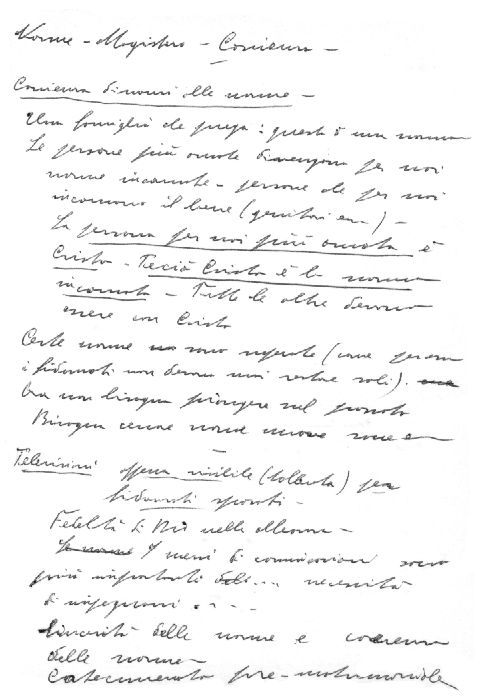 Norme - Magistero - Coscienza -
Coscienza dinanzi alle norme -
Una famiglia che prega: questa è una norma
Le persone più amate divengono per noi
norme incarnate - persone che per noi
incarnano il bene (genitori ecc.) -
La persona per noi più amata è
Cristo - Perciò Cristo è la norma
incarnata - Tutte le altre devono
essere con Cristo
Certe norme sono superate (come per es.
i fidanzati non devono mai restare soli).
Ora non bisogna piangere sul passato
Bisogna cercare norme nuove
Televisioni offerta visibile (tollerata) per
fidanzati sposati -
Fedeltà di Dio nelle alleanze -
I mezzi di comunicazione sono
più importanti ... necessità
di impegnarsi ....
Sincerità delle norme e coerenza
delle norme
Catecumenato pre-matrimoniale